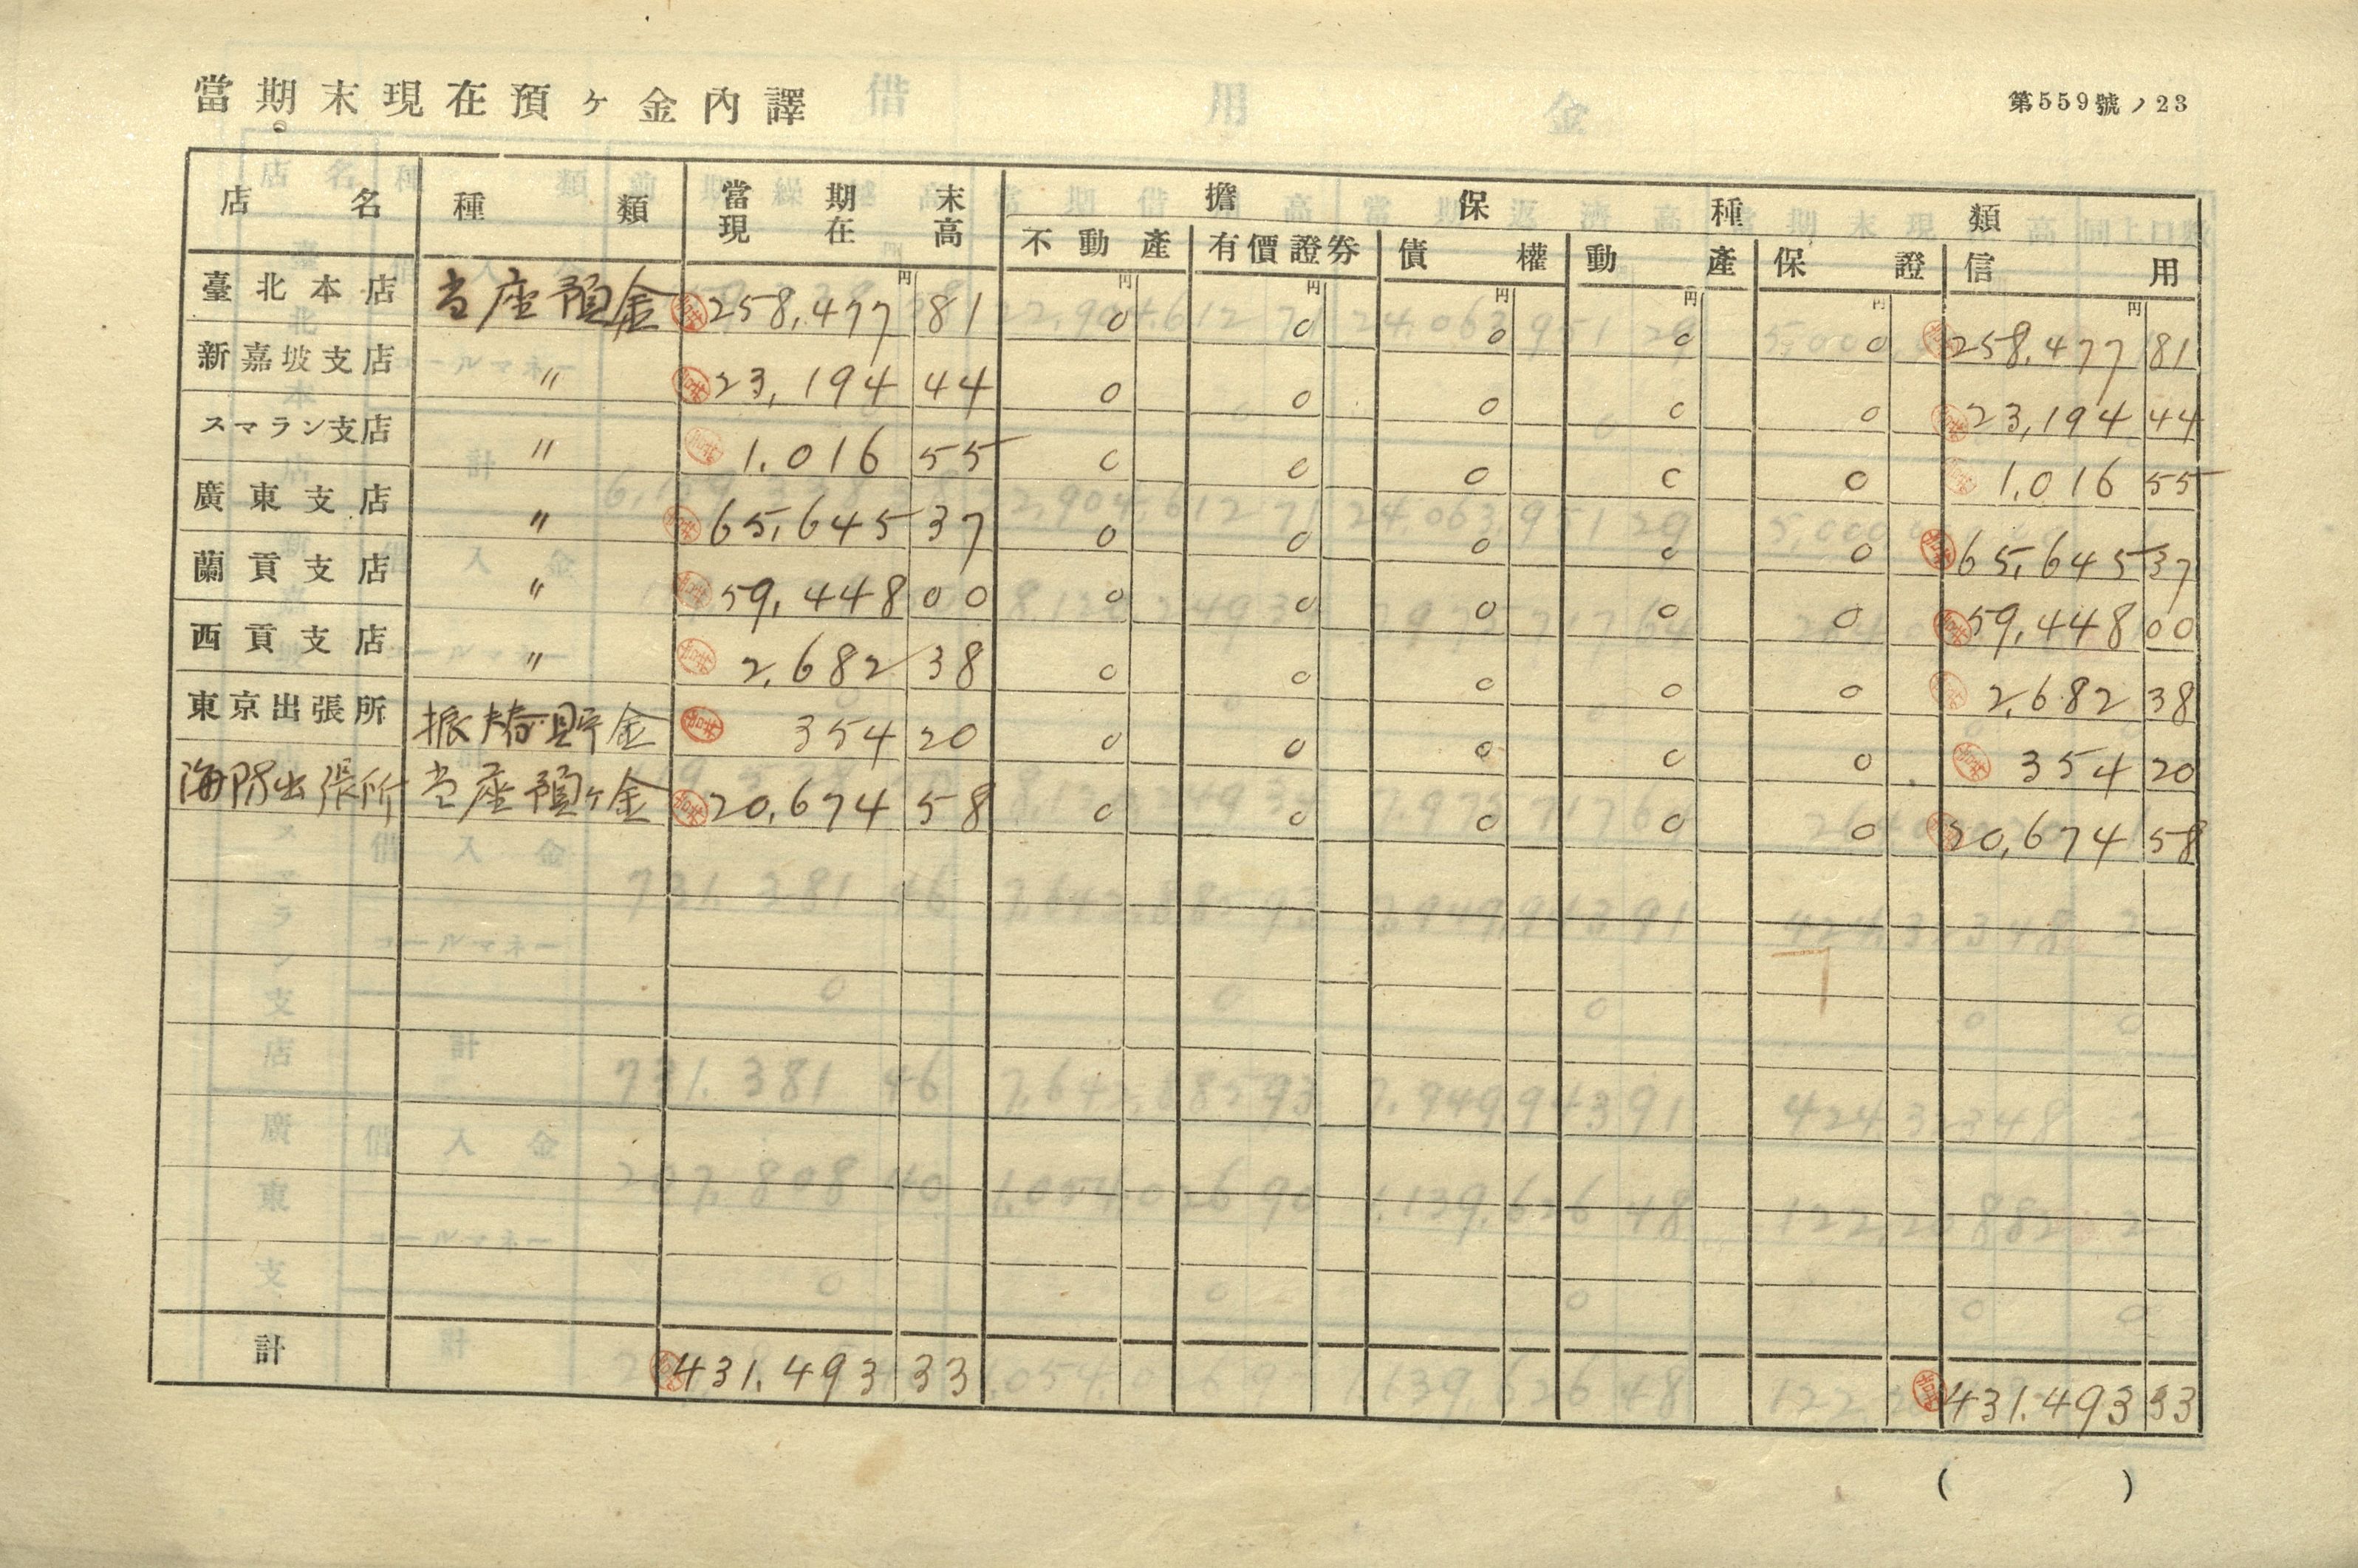 當期末現在預ヶ金內譯
第559號ノ23
店名 種類 當期末現在高 擔保種類
不動產 有價證券 債權 動產 保證 信用
円 円 円 円 円 円 円
臺北本店 当座預金 258,477 81 0 0 0 0 0 258,477 81
新嘉坡支店 〃 23,194 44 0 0 0 0 0 23,194 44
スマラン支店 〃 1,016 55 0 0 0 0 0 1,016 55
廣東支店 〃 65,645 37 0 0 0 0 0 65,645 37
蘭貢支店 〃 59,448 00 0 0 0 0 0 59,448 00
西貢支店 〃 2,682 38 0 0 0 0 0 2,682 38
東京出張所 振替貯金 354 20 0 0 0 0 0 354 20
海防出張所 当座預ヶ金 20,674 58 0 0 0 0 0 20,674 58
計 431,493 33 431,493 33
( )